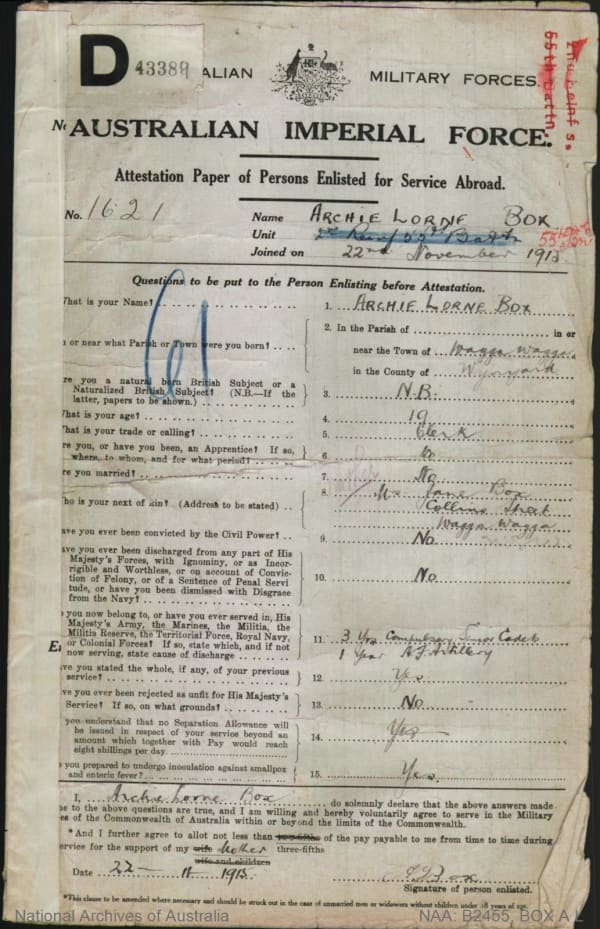 D 43389
ALIAN MILITARY FORCES.
2nd Reinf s.
55th Battn.
AUSTRALIAN IMPERIAL FORCE.
Attestation Paper of Persons Enlisted for Service Abroad.
No. 1621
Name ARCHIE LORNE BOX
Unit 2nd Reinf 55th Battn
Joined on 22nd November 1915
Questions to be put to the Person Enlisting before Attestation.
61
hat is your Name?
1. ARCHIE LORNE BOX
n or near what Parish or Town were you born?
2. In the Parish of in or
near the Town of Wagga Wagga
in the County of Wynyard
re you a natural born British Subject or a
Naturalized British Subject? (N.B.—If the
latter, papers to be shown.)
3. N.B.
hat is your age?
4. 19
hat is your trade or calling?
5. Clerk
re you, or have you been, an Apprentice? If so,
where, to whom, and for what period?
6.
re you married?
7. No
ho is your next of kin? (Address to be stated)
8. Jane Box
Collins Street
Wagga Wagga
ave you ever been convicted by the Civil Power?
9. No
ave you ever been discharged from any part of His
Majesty's Forces, with Ignominy, or as Incor-
rigible and Worthless, or on account of Convic-
tion of Felony, or of a Sentence of Penal Servi
tude, or have you been dismissed with Disgrace
from the Navy?
10. No
you now belong to, or have you ever served in, His
Majesty's Army, the Marines, the Militia, the
Militia Reserve, the Territorial Force, Royal Navy,
or Colonial Forces? If so, state which, and if not
now serving, state cause of discharge
11. 3 Yrs Compulsory Senior Cadet
1 Year A.F. Artillery
ave you stated the whole, if any, of your previous
service?
12. Yes
ave you ever been rejected as unfit for His Majesty's
Service? If so, on what grounds?
13. No
you understand that no Separation Allowance will
be issued in respect of your service beyond an
amount which together with Pay would reach
eight shillings per day
14. Yes
you prepared to undergo inoculation against smallpox
and enteric fever?
15. Yes
I, Archie Lorne Box do solemnly declare that the above answers made
e to the above questions are true, and I am willing and hereby voluntarily agree to serve in the Military
es of the Commonwealth of Australia within or beyond the limits of the Commonwealth.
*And I further agree to allot not less than two-fifths of the pay payable to me from time to time during
ervice for the support of my wife Mother three-fifths
wife and children
Date 22 - 11 1915
Box
Signature of person enlisted.
*This clause to be amended where necessary and should be struck out in the case of unmarried men or widowers without children under 18 years of age.
National Archives of Australia
NAA: B2455, BOX A L